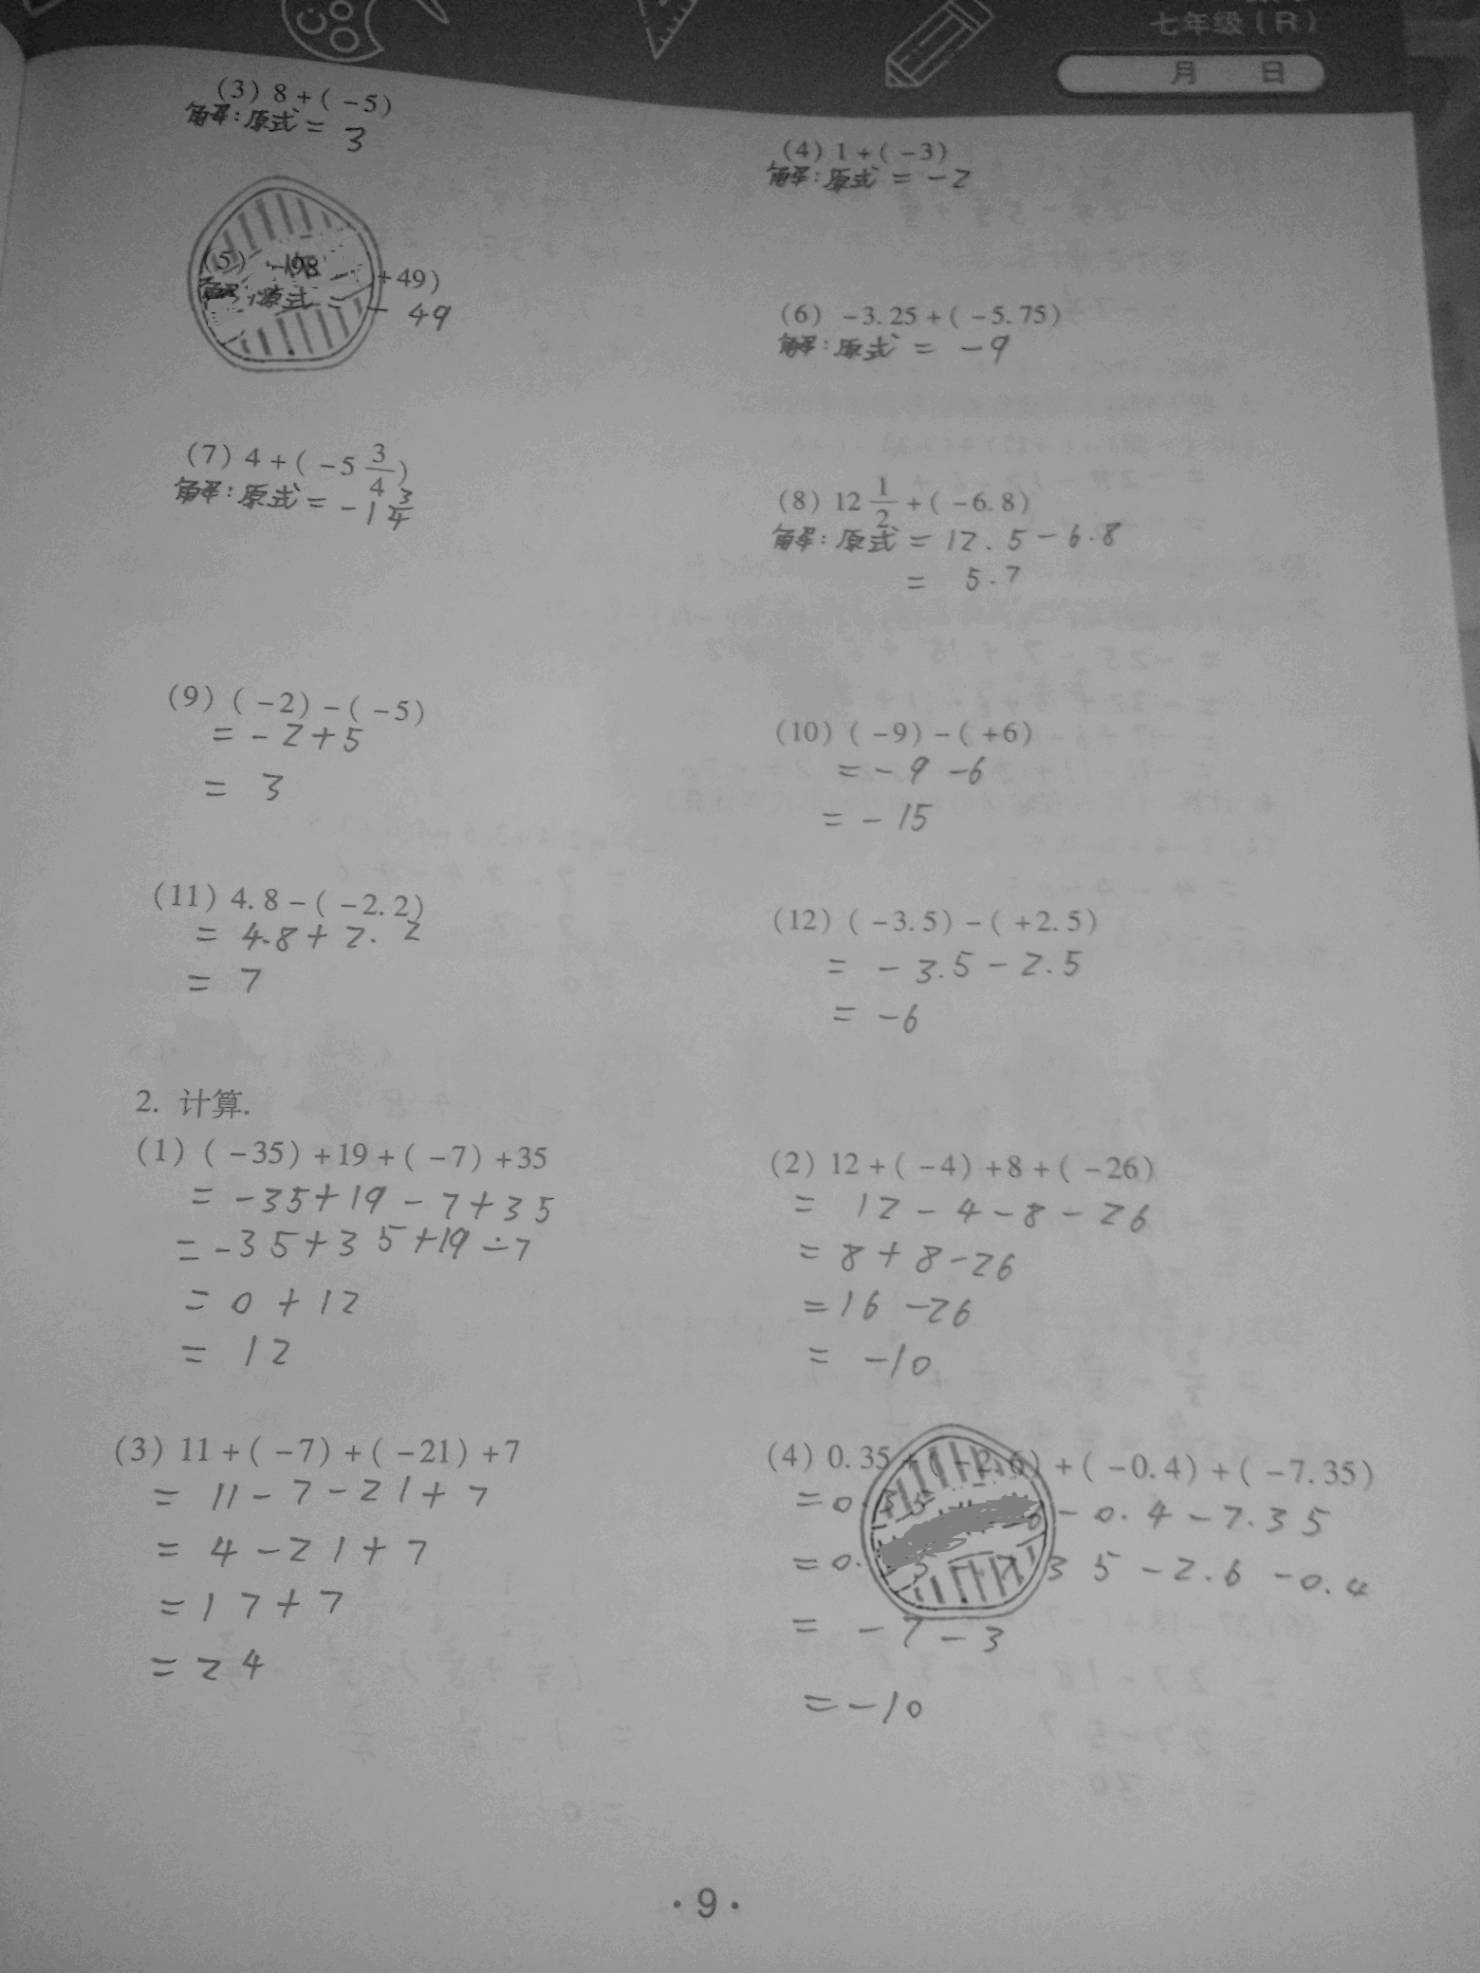 七年级（R）
月 日
(3) 8+(-5)
解:原式 = 3
(4) 1+(-3)
解:原式 = -2
(5) -98 +49)
解:原式 = -49
(6) -3.25+(-5.75)
解:原式 = -9
(7) 4+(-5 3/4)
解:原式 = -1 3/4
(8) 12 1/2 +(-6.8)
解:原式 = 12.5-6.8
= 5.7
(9) (-2)-(-5)
= -2+5
= 3
(10) (-9)-(+6)
= -9-6
= -15
(11) 4.8-(-2.2)
= 4.8+2.2
= 7
(12) (-3.5)-(+2.5)
= -3.5-2.5
= -6
2. 计算.
(1) (-35)+19+(-7)+35
= -35+19-7+35
= -35+35+19-7
= 0+12
= 12
(2) 12+(-4)+8+(-26)
= 12-4-8-26
= 8+8-26
= 16-26
= -10
(3) 11+(-7)+(-21)+7
= 11-7-21+7
= 4-21+7
= 17+7
= 24
(4) 0.35+(-2.6)+(-0.4)+(-7.35)
= 0.35 6-0.4-7.35
= 0. 5-7.35-2.6-0.4
= -7-3
= -10
·9·